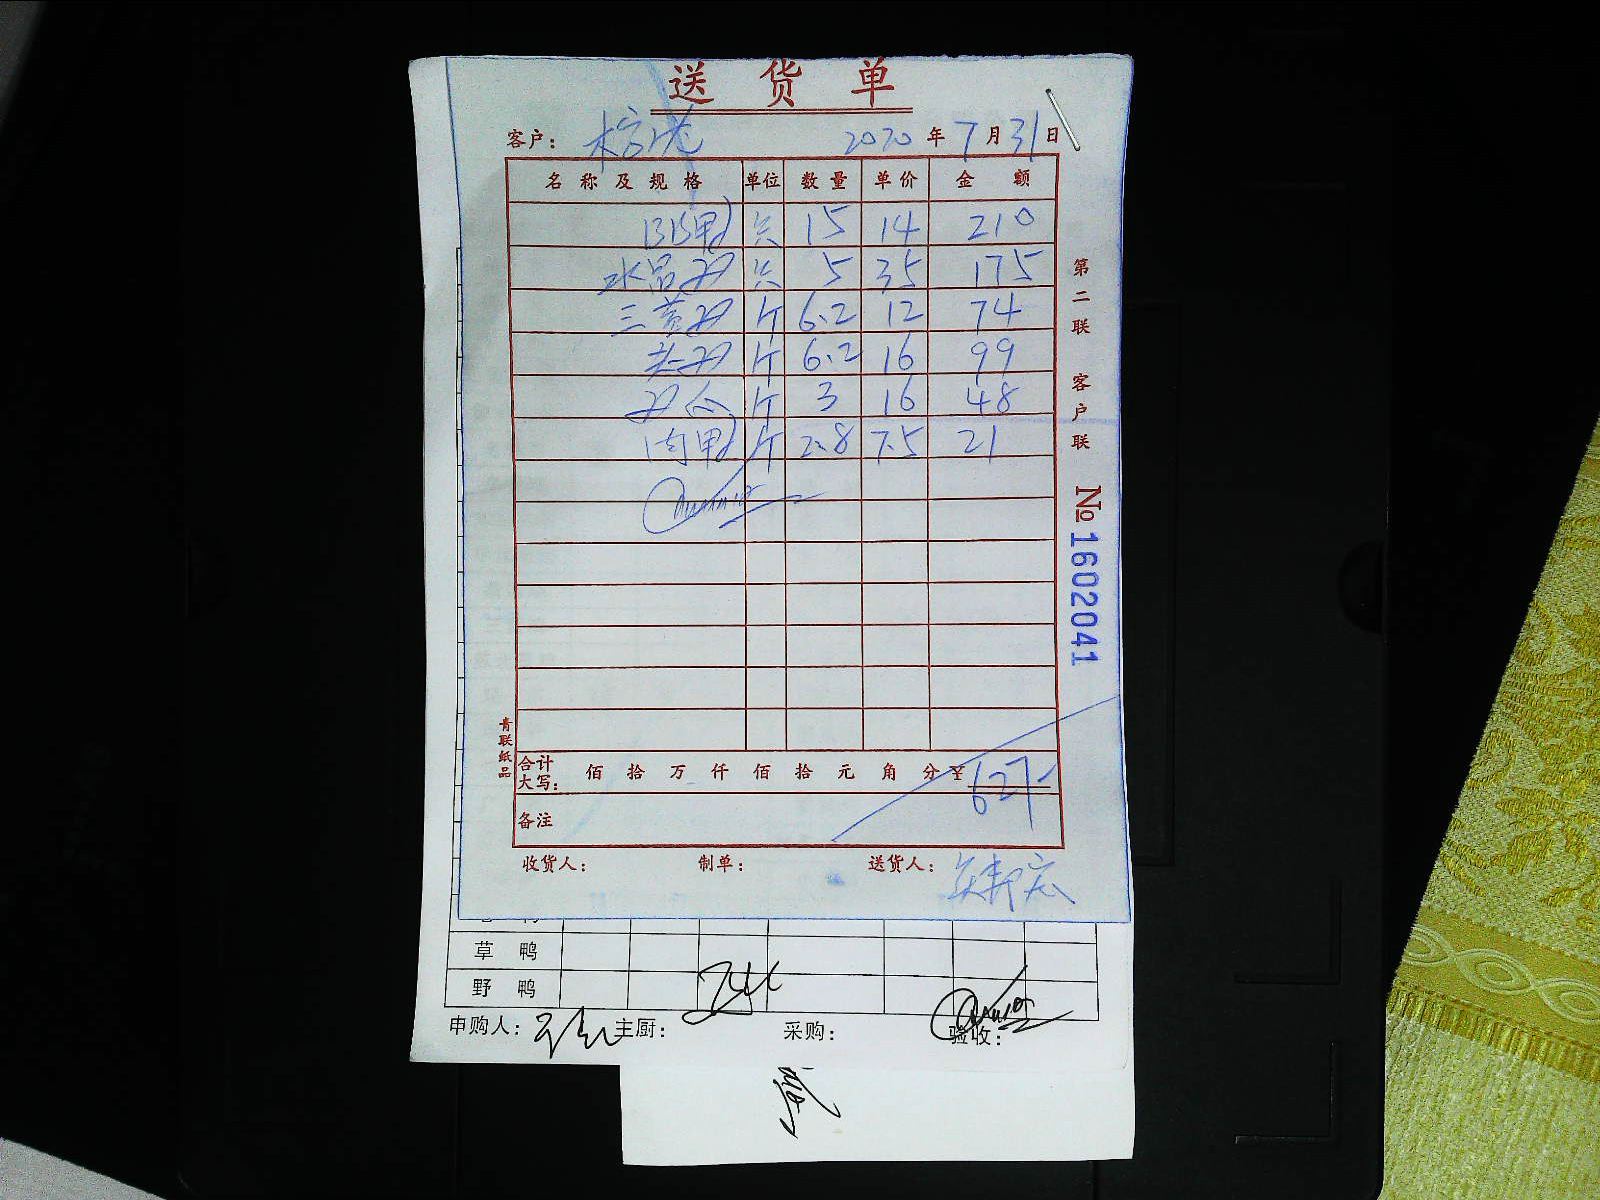 送货单
客户： 2020 年 7 月 31 日
名称及规格 单位 数量 单价 金额
只 15 14 210
只 5 35 175
三黄 斤 6.2 12 74
斤 6.2 16 99
斤 3 16 48
肉 斤 2.8 7.5 21
合计大写： 佰 拾 万 仟 佰 拾 元 角 分 ¥ 627
备注
收货人： 制单： 送货人：
第二联 客户联
№ 1602041
青联纸品
草鸭
野鸭
申购人： 主厨： 采购： 验收：